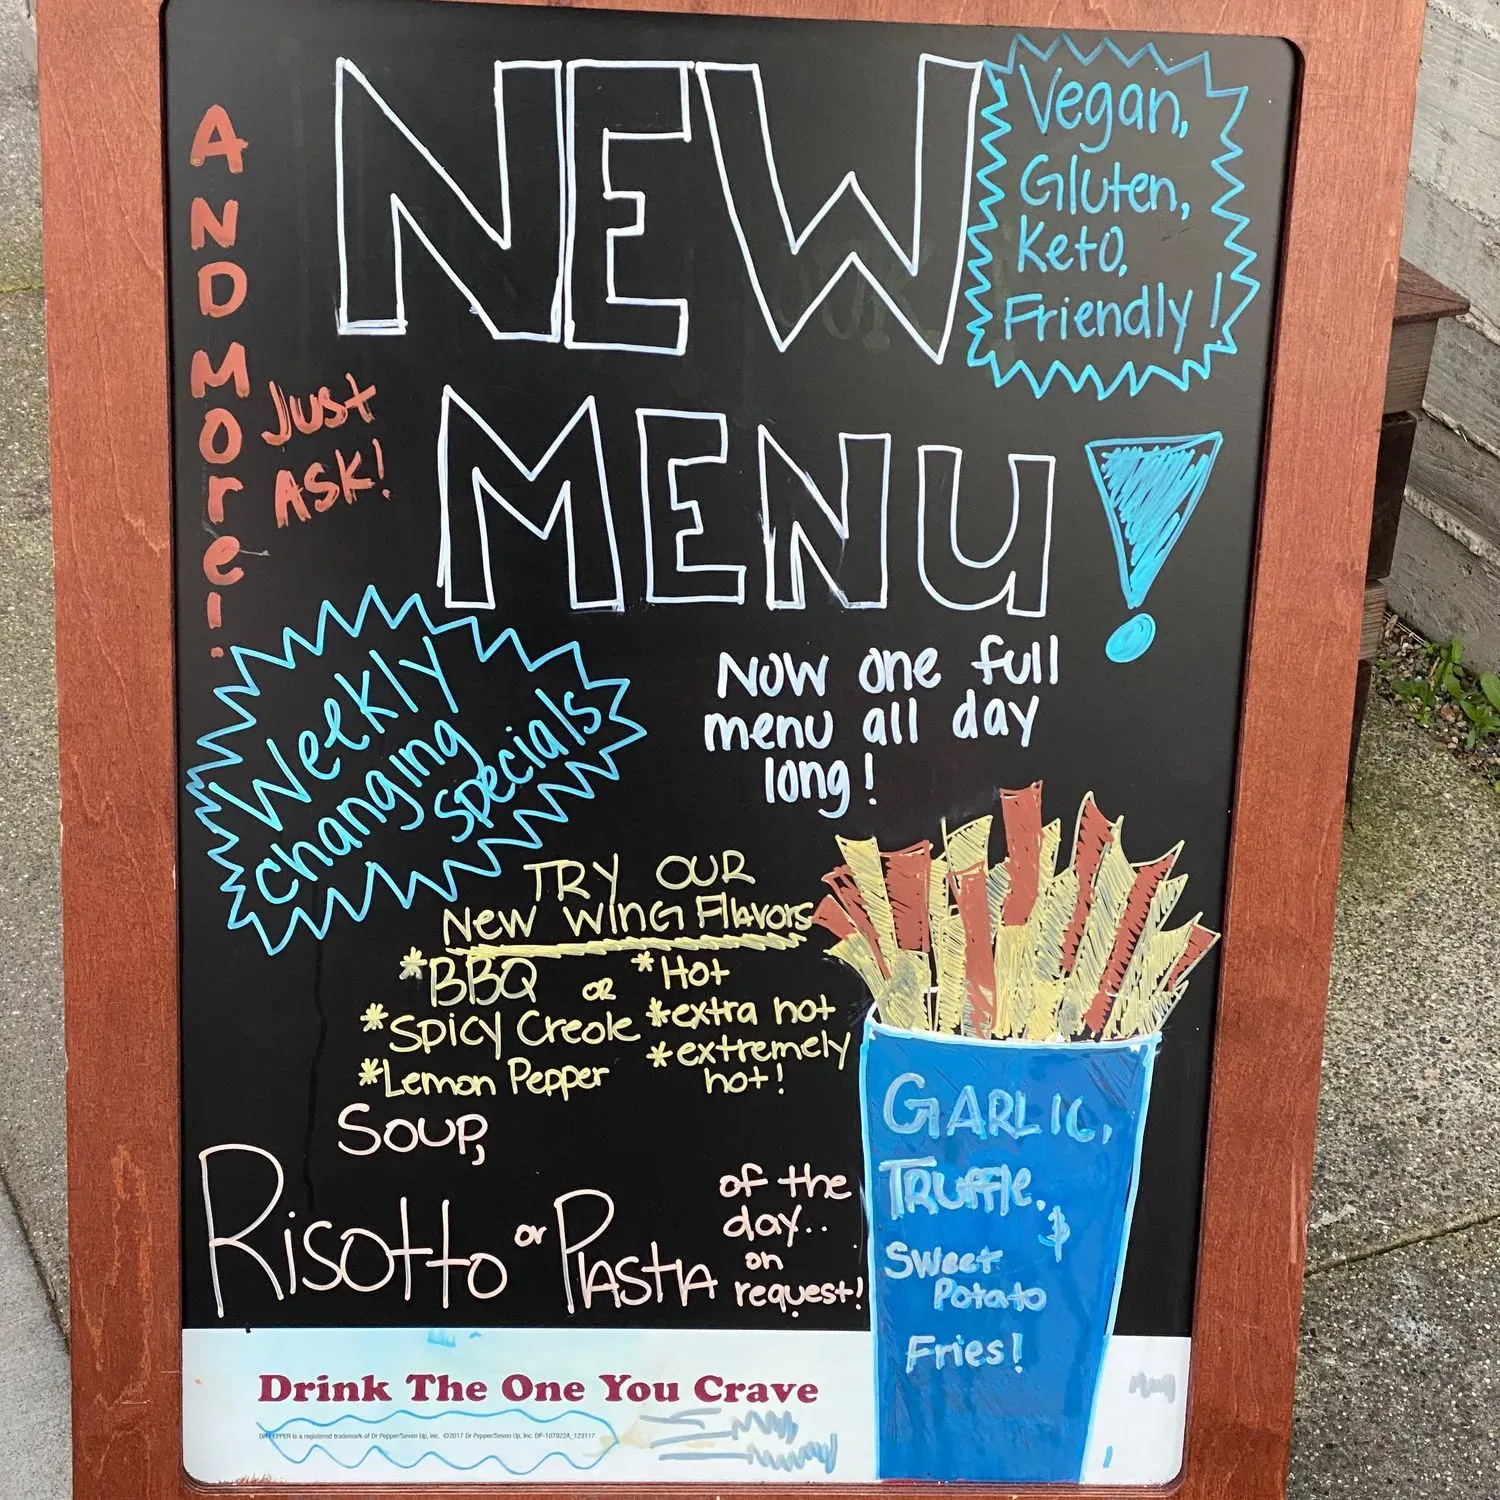 NEW
MENU!
Vegan,
Gluten,
Keto,
Friendly!
AND MOre!
Just
ASK!
Weekly
changing
specials
Now one full
menu all day
long!
TRY OUR
New WING Flavors
*BBQ or *Hot
*Spicy Creole *extra hot
*Lemon Pepper *extremely
hot!
Soup,
Risotto or Pasta
of the
day..
on
request!
GARLIC,
TRuffle,
$
Sweet
Potato
Fries!
Drink The One You Crave
DR PEPPER is a registered trademark of Dr Pepper/Seven Up, Inc. ©2017 Dr Pepper/Seven Up, Inc. DP-107922A_123117